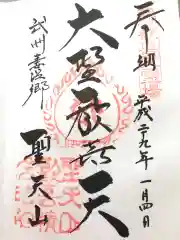 奉納
平成二九年一月四日
大聖歓喜天
武州妻沼郷
聖天山